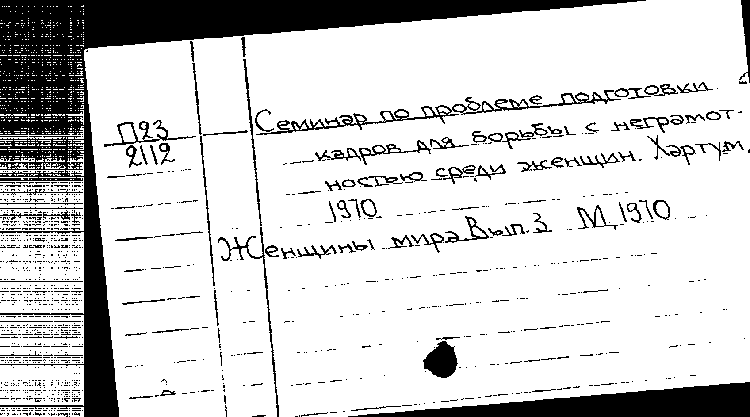 П23
2112
Семинар по проблеме подготовки
кадров для борьбы с неграмот-
ностью среди женщин. Хартум,
1970
Женщины мира Вып. 3 М, 1970
2